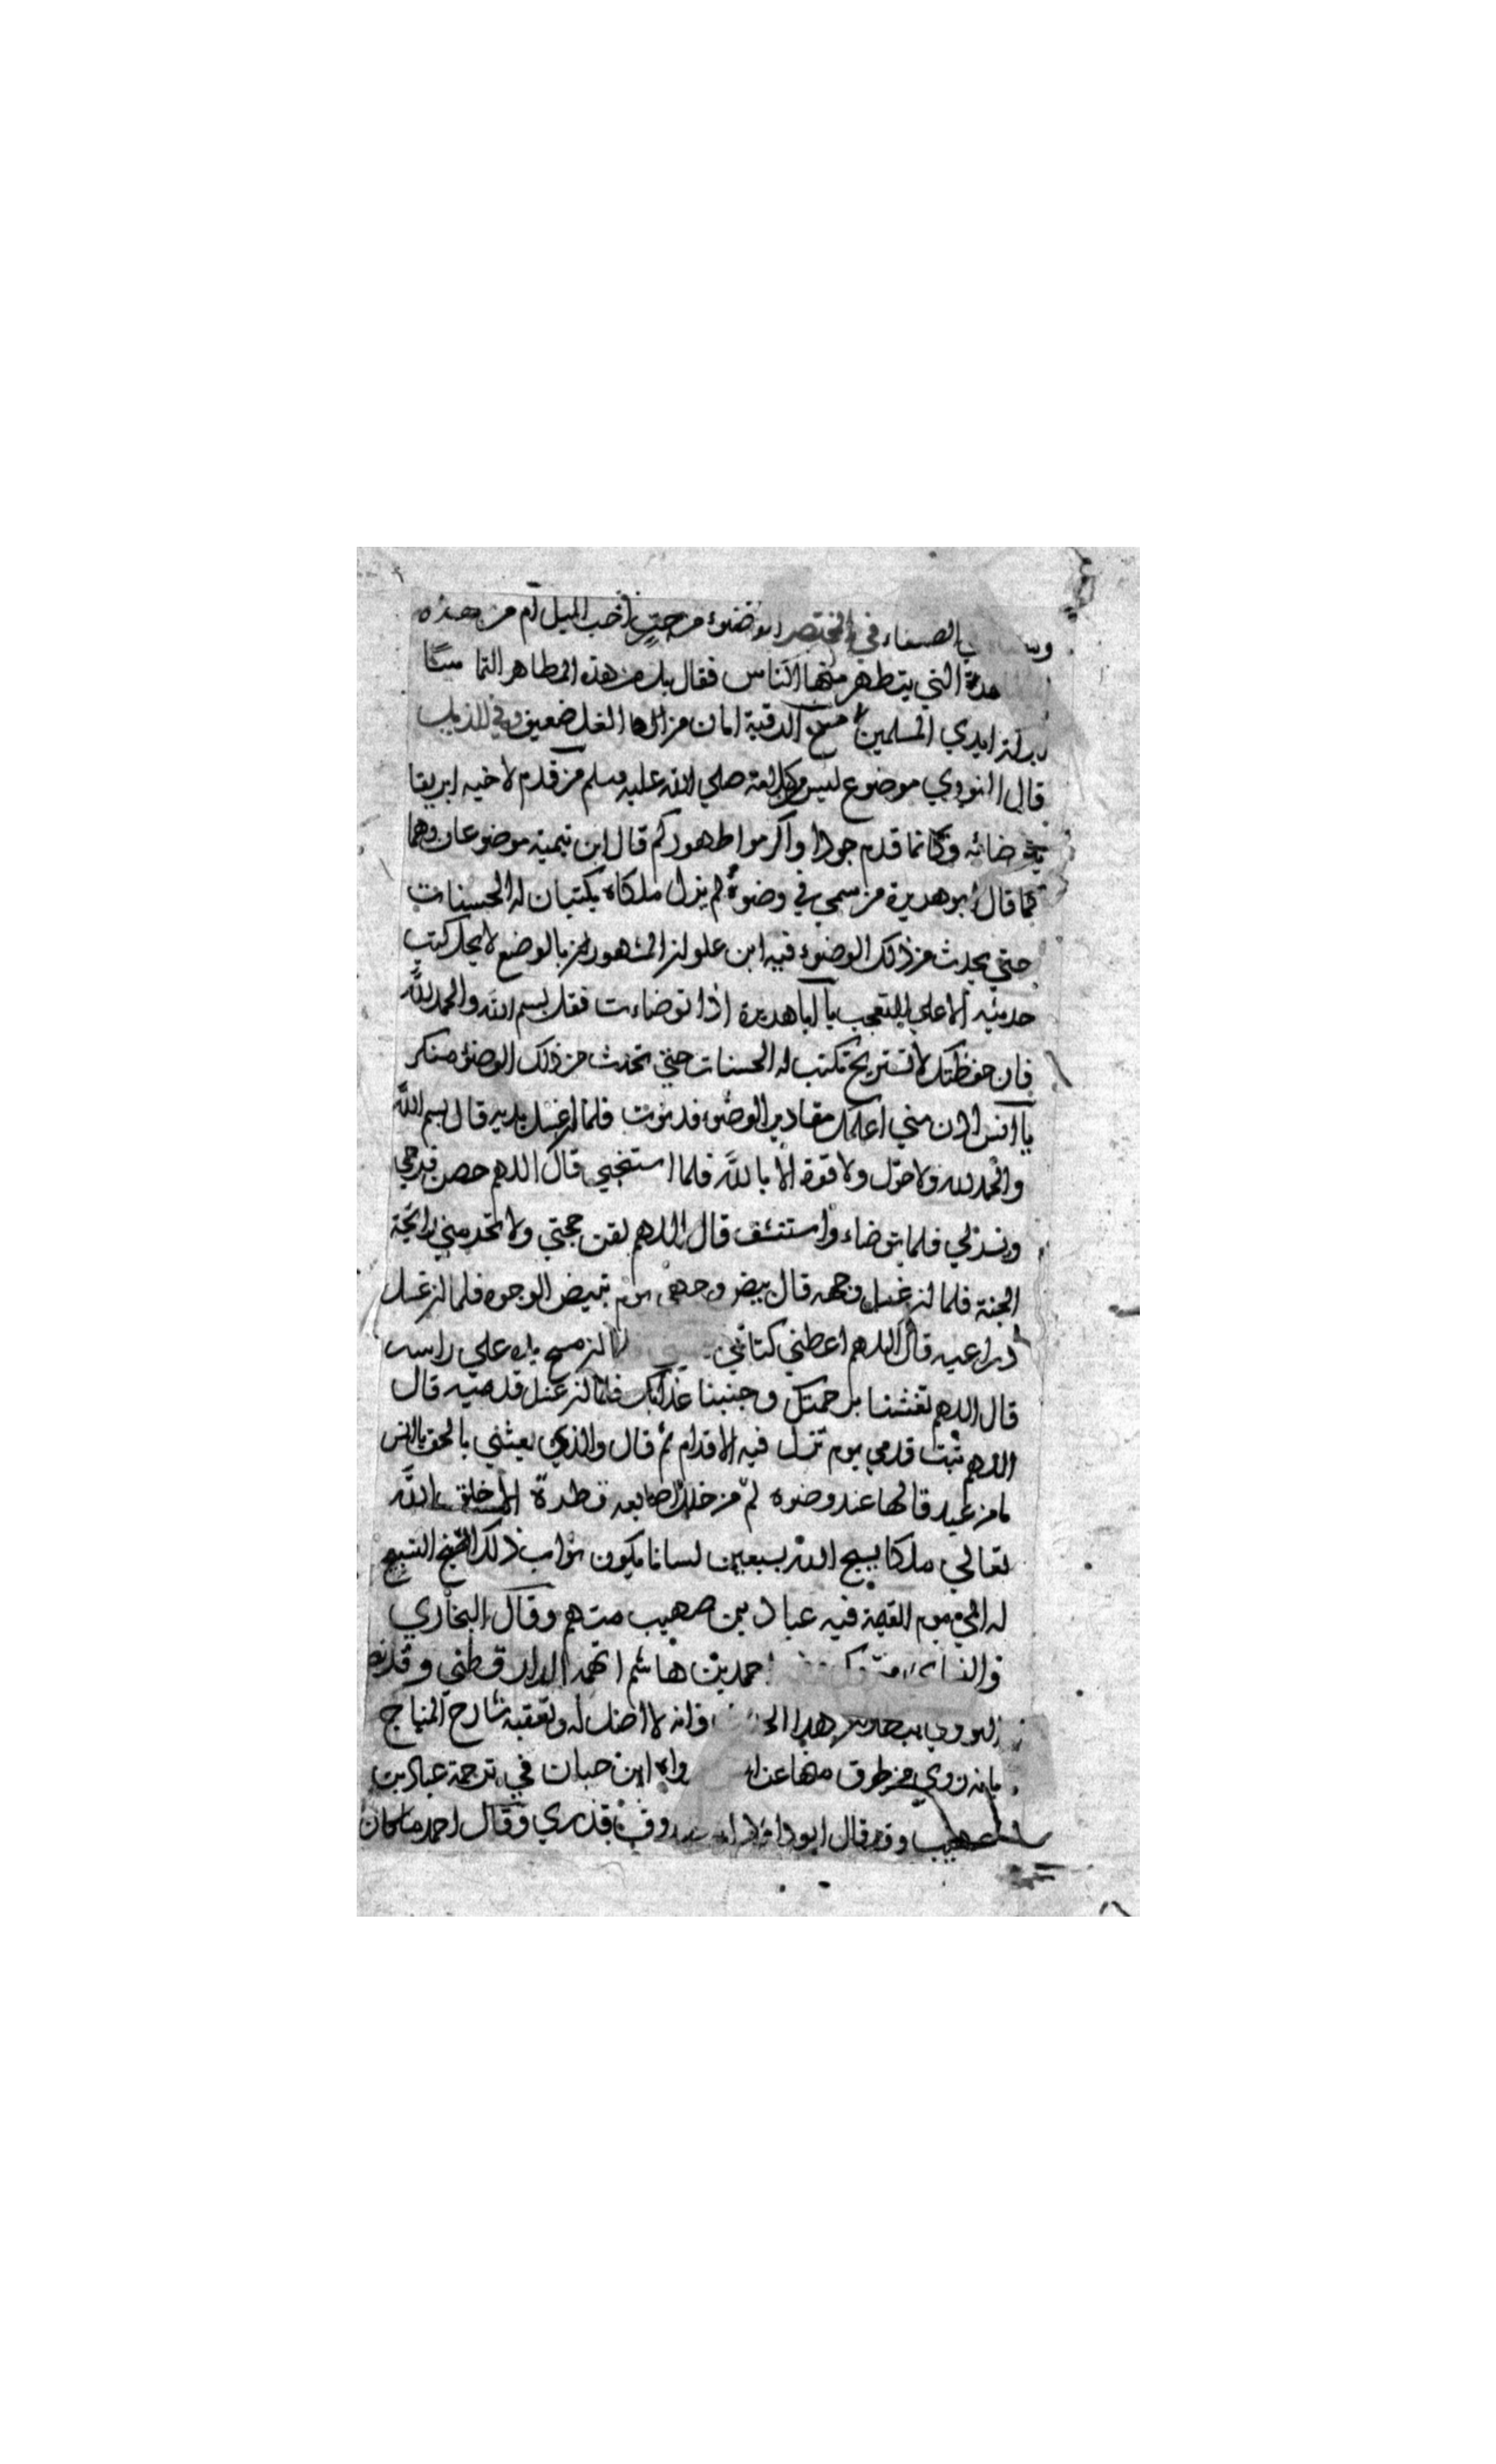 الصنعاء في المختصر الوضوء من جر احب اليك ام من هذه
التي يتطهر منها الناس فقال بل من هذه المطاهر التماسا
بركة ايدي المسلمين مسح الرقبة امان من الغل ضعيف وفي الذيل
قال النووي موضوع ليس من كلامه صلي الله عليه وسلم من قدم لاخيه ابريقا
يتوضاء به وكانما قدم جوادا واكرموا طهوركم قال ابن تيمية موضوعان وهما
كما قال ابو هريرة من سمي في وضوء لم يزل ملكاه يكتبان له الحسنات
حتي يحدث من ذلك الوضوء فيه ابن علوان المشهور بالوضع لا يحل كتب
حديثه الا علي التعجب يا ابا هريرة اذا توضاءت فقل بسم الله والحمد لله
فان حفظتك لا تستريح تكتب له الحسنات حتي تحدث من ذلك الوضوء منكر
يا انس ادن مني اعلمك مقادير الوضوء فدنوت فلما ان غسل يديه قال بسم الله
والحمد لله ولا حول ولا قوة الا بالله فلما استنجي قال اللهم حصن فرجي
ويسر لي فلما توضاء واستنشق قال اللهم لقن حجتي ولا تحرمني رائحة
الجنة فلما ان غسل وجهه قال بيض وجهي يوم تبيض الوجوه فلما ان غسل
ذراعيه قال اللهم اعطني كتابي ان مسح يده علي راسه
قال اللهم تغشنا برحمتك وجنبنا عذابك فلما ان غسل قدميه قال
اللهم ثبت قدمي يوم تزل فيه الاقدام ثم قال والذي بعثني بالحق يا انس
ما من عبد قالها عند وضوه لم من خلل اصابعه قطرة الا خلق الله
تعالي ملكا يسبح الله بسبعين لسانا يكون ثواب ذلك التسبيح
له الي يوم القيمة فيه عباد بن صهيب متهم وقال البخاري
والنسائي متروك احمد بن هاشم اتهمه الدارقطني وقد نص
النووي ببطلان هذا الحديث وانه لا اصل له وتعقبه شارح المنهاج
بانه روي من طرق منها عن ابن حبان في ترجمة عباد بن
صهيب وقد قال ابو داود انه صدوق قدري وقال احمد ما كان